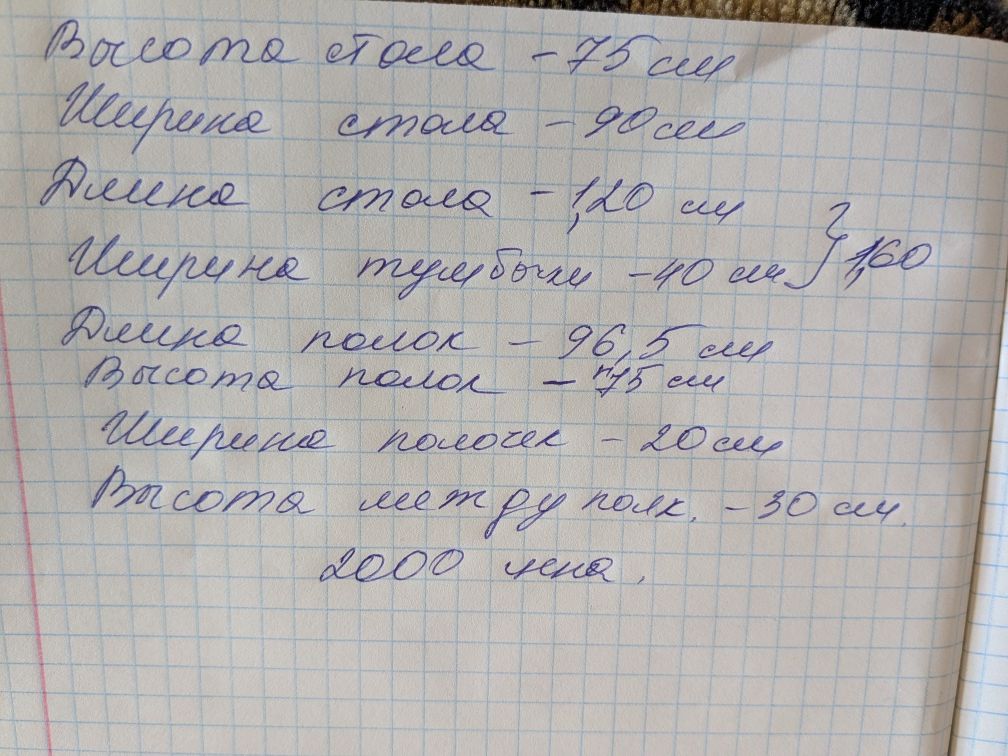 Высота стола - 75 см
Ширина стола - 90 см
Длина стола - 1,20 см
Ширина тумбочки - 40 см } 1,60
Длина полок - 96,5 см
Высота полок - 75 см
Ширина полочек - 20 см
Высота между полк. - 30 см.
2000